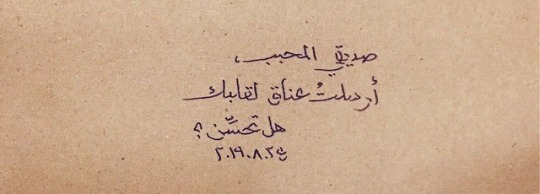 صديقي المحبب،
أرسلتُ عناق لقلبك
هل تحسّن؟
٢٠١٩.٨.٢٤